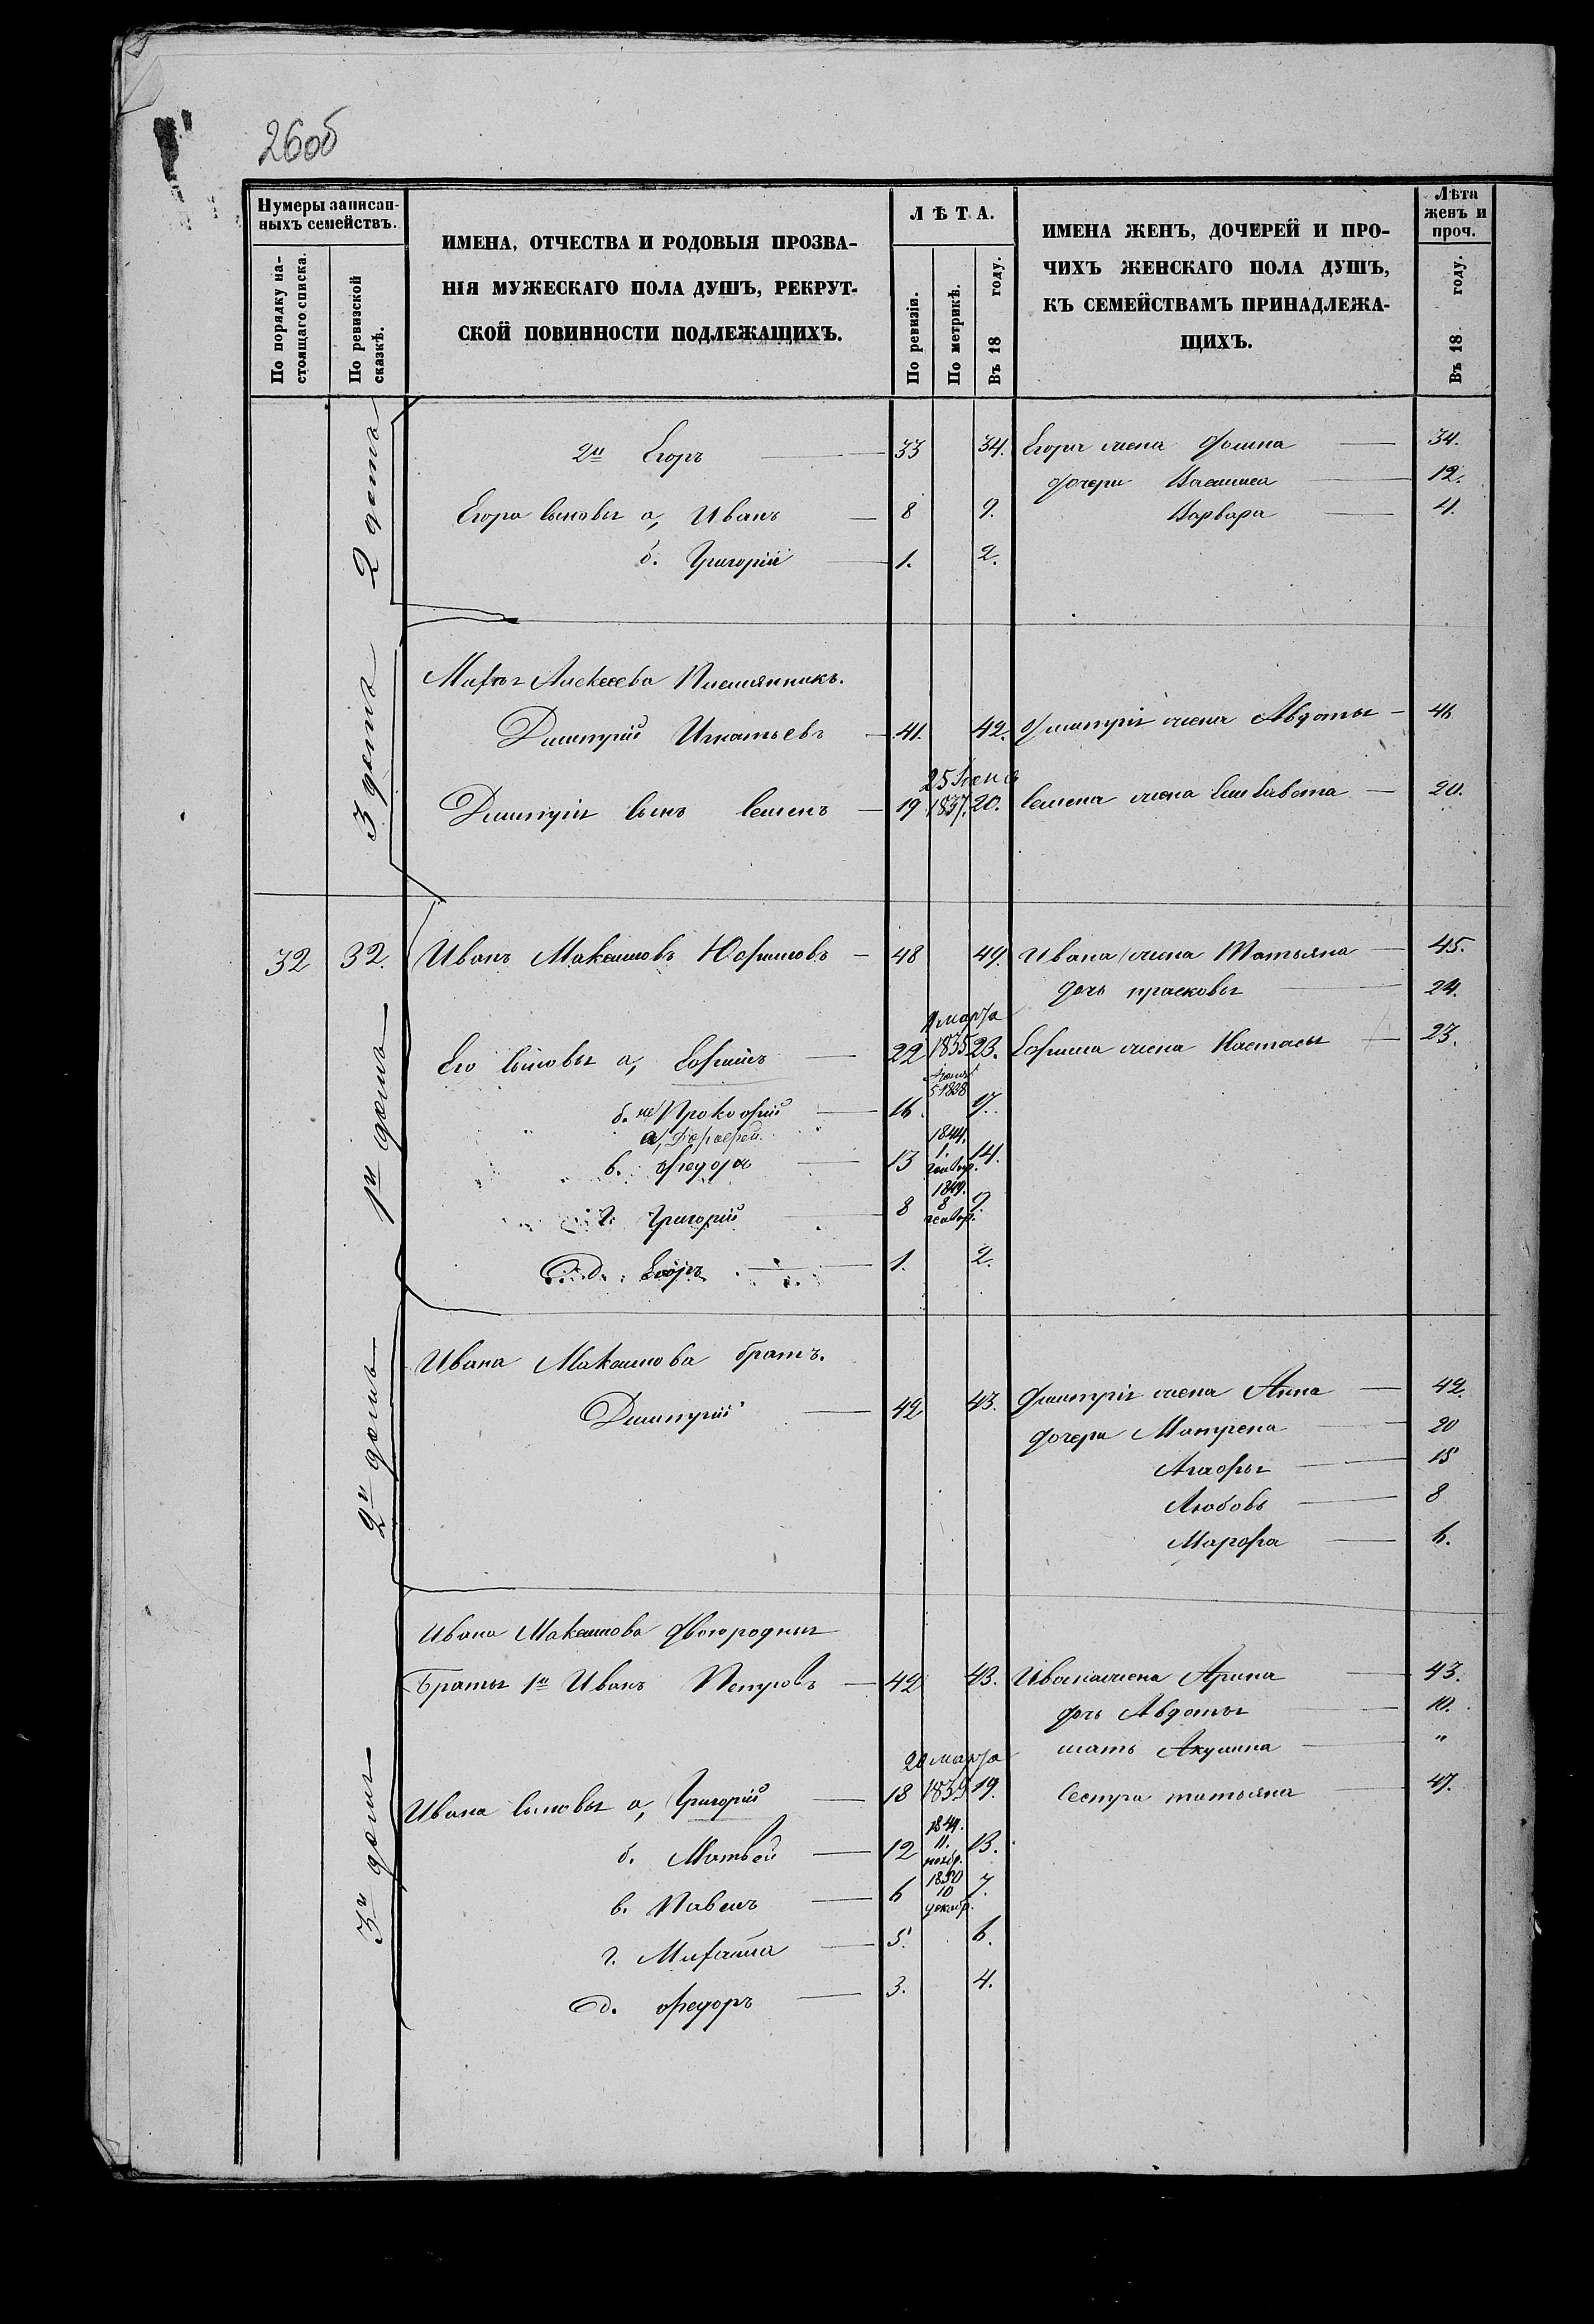 26об
Нумеры записан-
ныхъ семействъ.
По порядку на-
стоящаго списка.
По ревизской
сказкѣ.
ИМЕНА, ОТЧЕСТВА И РОДОВЫЯ ПРОЗВА-
НІЯ МУЖЕСКАГО ПОЛА ДУШЪ, РЕКРУТ-
СКОЙ ПОВИННОСТИ ПОДЛЕЖАЩИХЪ.
ЛѢТА.
По ревизіи.
По метрикѣ.
Въ 18 году.
ИМЕНА ЖЕНЪ, ДОЧЕРЕЙ И ПРО-
ЧИХЪ ЖЕНСКАГО ПОЛА ДУШЪ,
КЪ СЕМЕЙСТВАМЪ ПРИНАДЛЕЖА-
ЩИХЪ.
Лѣта
женъ и
проч.
Въ 18 году.
2й Егоръ 33 34. Егора жена 34.
дочери Василиса 12.
Егора сыновья а, Иванъ 8 9. Варвара 4.
б. Григорій 1. 2.
Алексеева Племянникъ.
Дмитрій Игнатьевъ 41. 42. Дмитрія жена Авдотья
25
Дмитрія сынъ Семенъ 19 1837. 20. Семена жена Елисавета 20.
32 32. Иванъ Максимовъ 48 49. Ивана жена Татьяна 45.
дочь Прасковья 24.
марта
Его сыновья а, Ефимъ 22 1835 23. Ефима жена Настасья 23.
5 1838
б. Прокофій 16. 17.
1844.
в. Федоръ 13 1. 14.
1849.
г. Григорій 8 8 9.
д. Егоръ 1. 2.
Ивана Максимова братъ.
Дмитрій 42 43. Дмитрія жена Анна 42.
дочери Матрена 20
15
Любовь 8
Марфа 6.
Ивана Максимова двоюродныя
Братья 1й Иванъ Петровъ 42 43. Ивана жена Арина 43.
дочь Авдотья 10.
20 марта мать Акулина "
Ивана сыновья а, Григорій 18 1839 19. сестра Татьяна 47.
1844.
11.
б. Матвей 12 ноябр. 13.
1850
10
в. Павелъ 6 декабр. 7.
г. Михайла 5. 6.
д. Федоръ 3. 4.